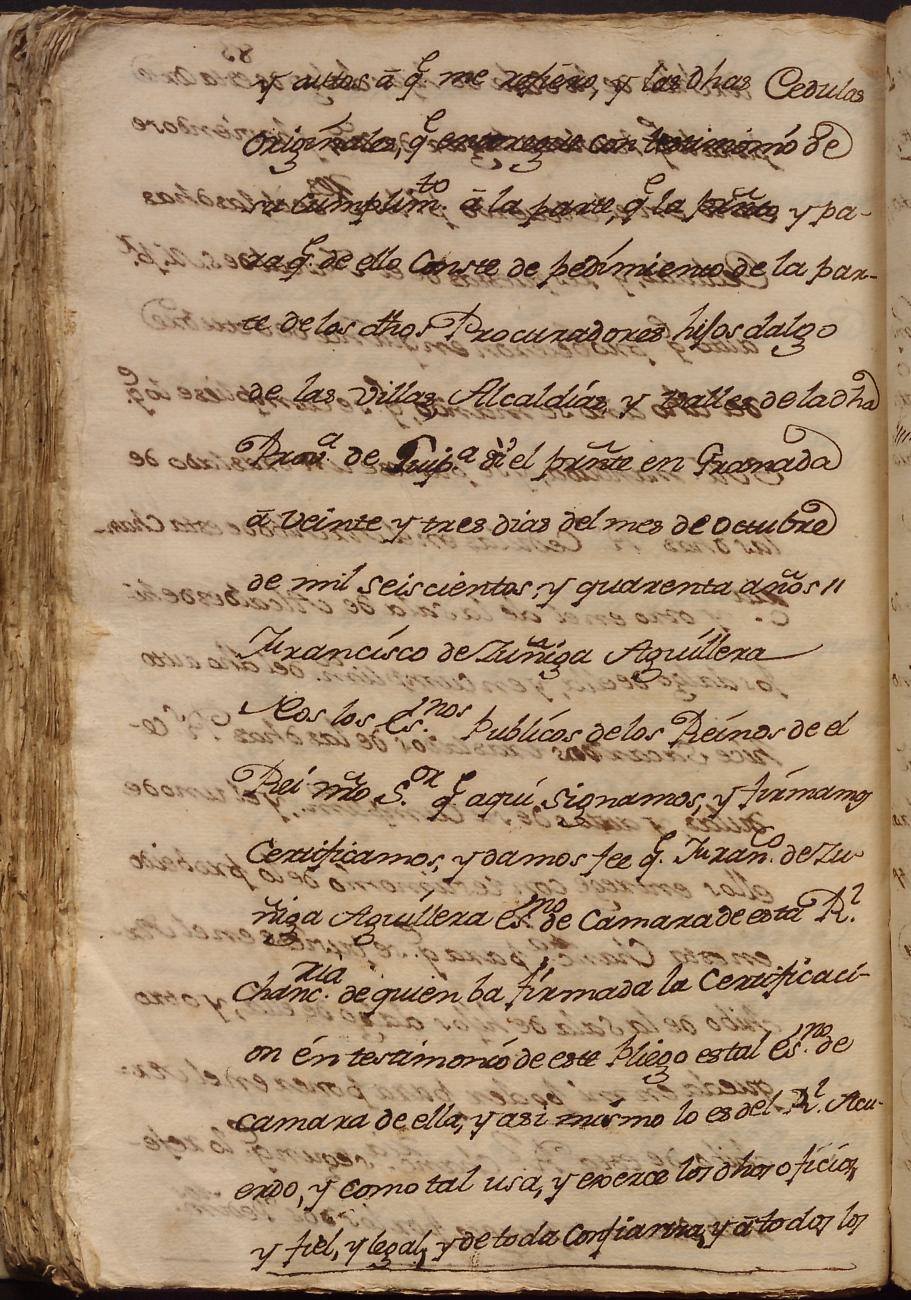 y autos â q.^e me refiero, y las dhas Cedulas
originales, q.^e entregue con testimonio de
su cumplim.^to â la parte, q.^e la presto, y pa-
ra q.^e de ello Conste de pedimiento de la par-
te de los dhos. Procuradores hijosdalgo
de las Villas Alcaldías y Valles de la dha
Prov.^a de Guip.^a di el prñte en Granada
â veinte y tres dias del mes de octubre
de mil seiscientos y quarenta años //
Francísco de Zuñiga Aguíllera
Nos los es.^nos Publícos de los Reínos de el
Reí nrõ S.^or q.^e aquí Signamos, y firmamos
Certificamos, y damos fee q.^e Fran.^co de Zu-
ñiga Aguíllera es.^no de Camara de esta R.^l
Chanc.^ria de quien ba firmada la Certificací-
on én testimonío de este Pliego es tal es.^no de
camara de ella, y asi mismo lo es del R.^l Acu-
erdo, y como tal usa, y exerce los dhos oficios,
y fiel, y legal, y de toda Confianza, y â todos los